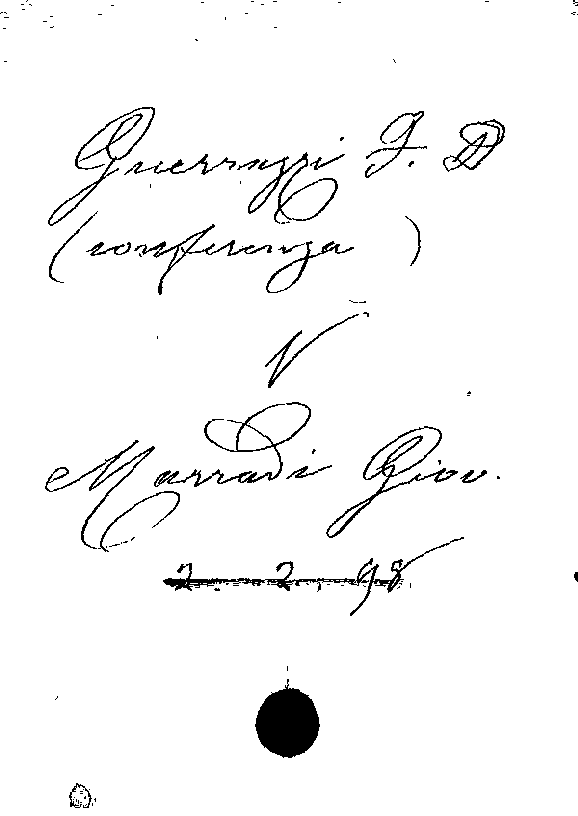 Guerrazzi F. D
(conferenza)
V
Marradi Giov.
2. 2. 98